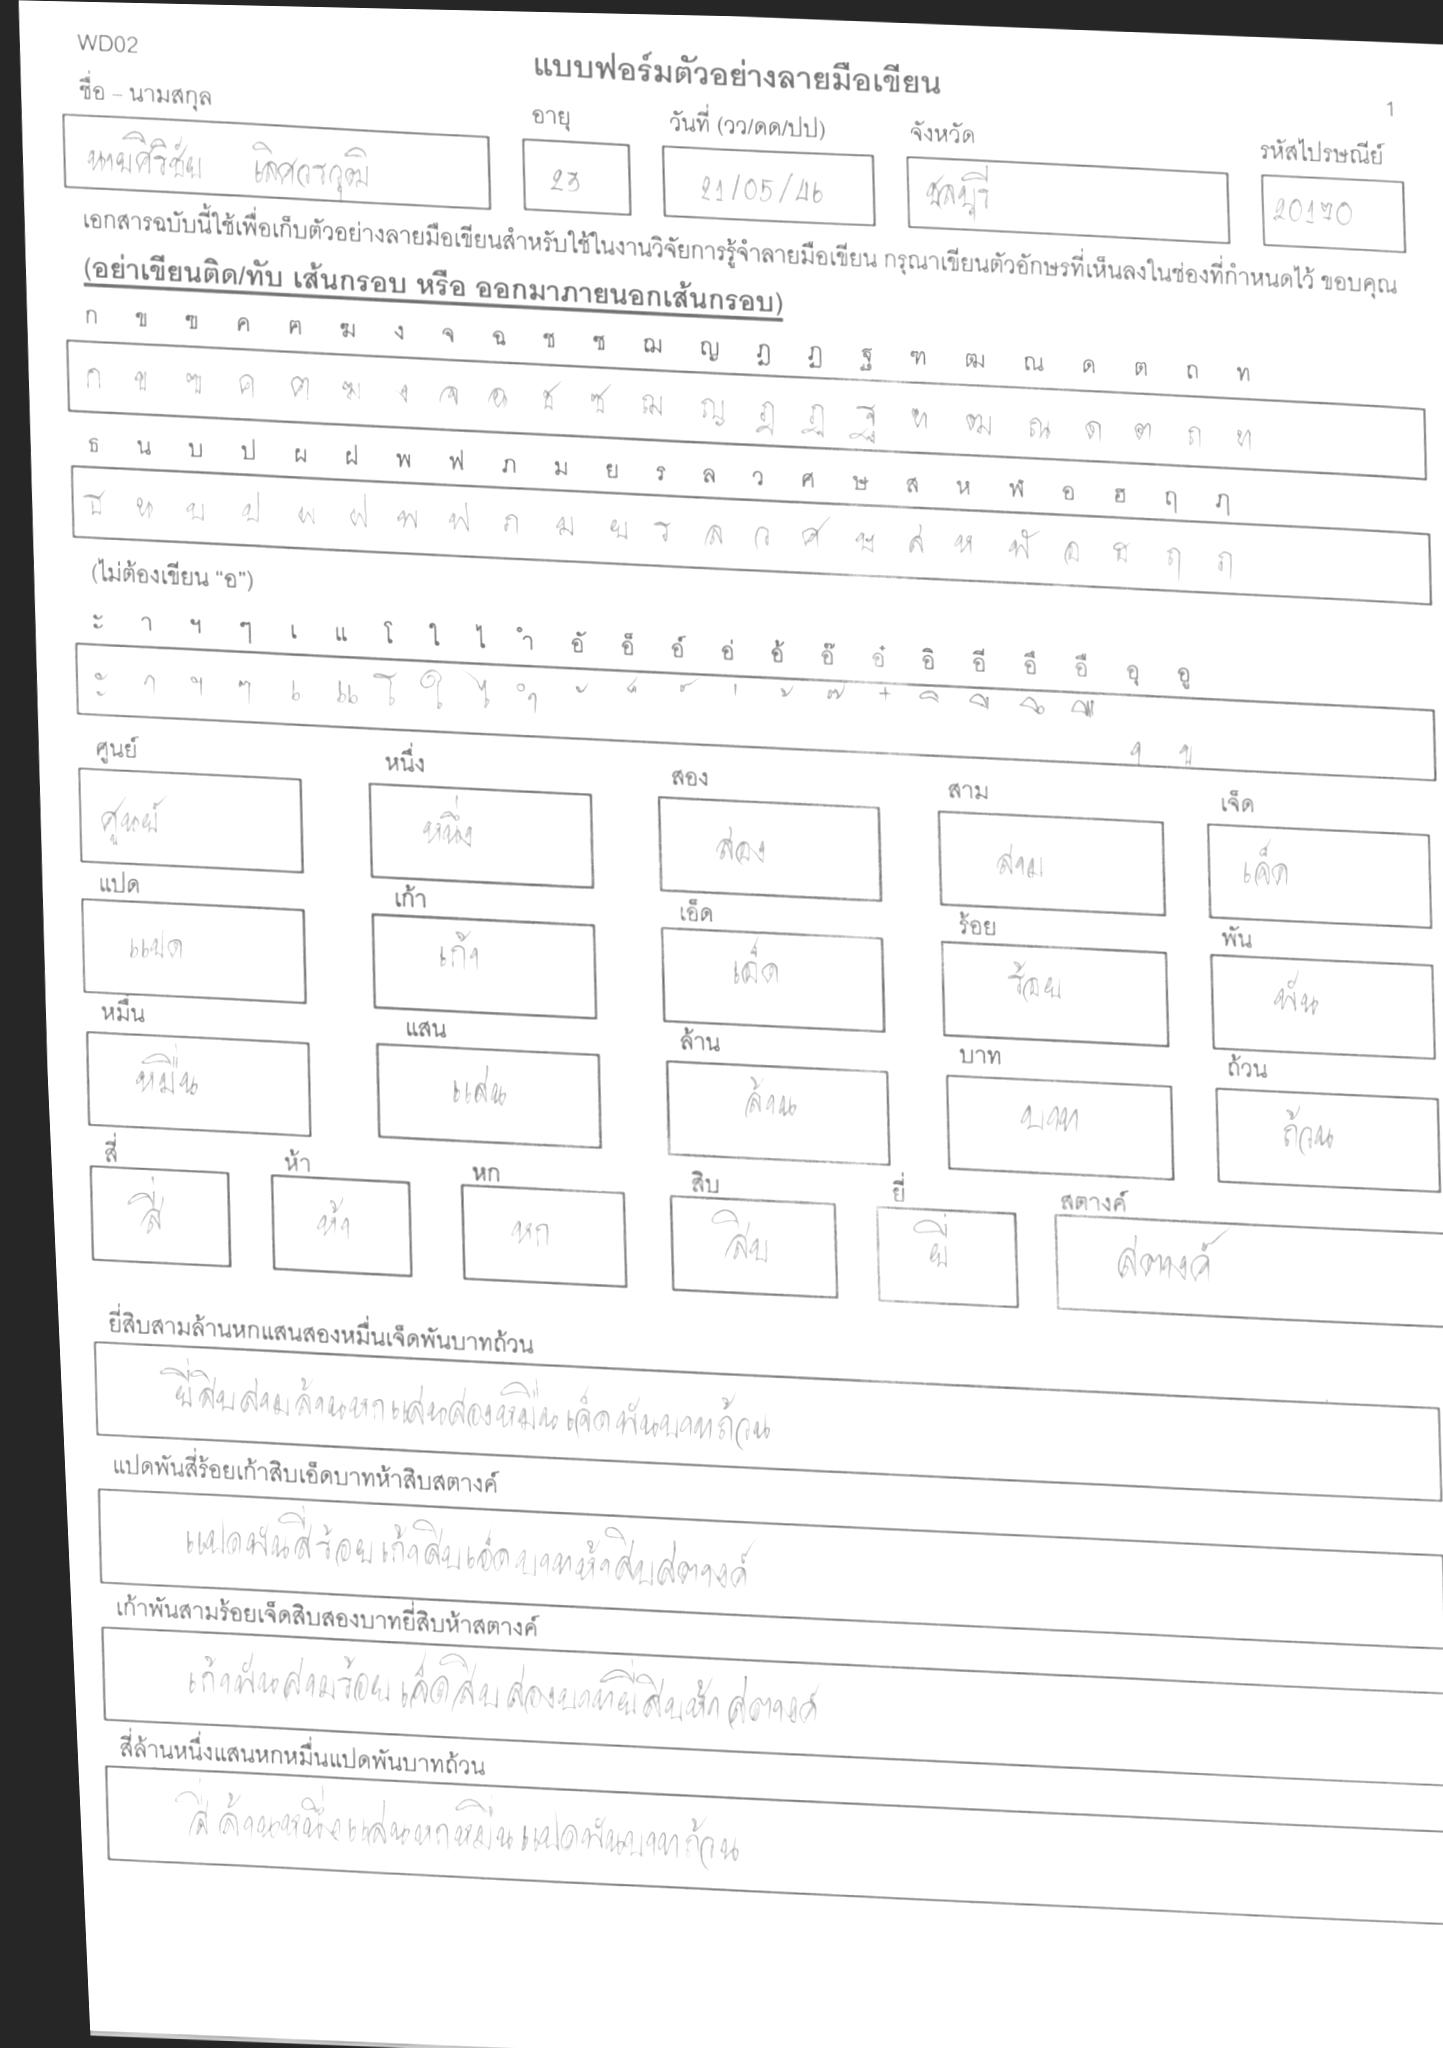 WD02
แบบฟอร์มตัวอย่างลายมือเขียน
1
ชื่อ – นามสกุล อายุ วันที่ (วว/ดด/ปป) จังหวัด รหัสไปรษณีย์
นายศิริชัย เลิศวรวุฒิ 23 21/05/46 ชลบุรี 20170
เอกสารฉบับนี้ใช้เพื่อเก็บตัวอย่างลายมือเขียนสำหรับใช้ในงานวิจัยการรู้จำลายมือเขียน กรุณาเขียนตัวอักษรที่เห็นลงในช่องที่กำหนดไว้ ขอบคุณ
(อย่าเขียนติด/ทับ เส้นกรอบ หรือ ออกมาภายนอกเส้นกรอบ)
ก ข ฃ ค ฅ ฆ ง จ ฉ ช ซ ฌ ญ ฎ ฏ ฐ ฑ ฒ ณ ด ต ถ ท
ก ข ฃ ค ฅ ฆ ง จ ฉ ช ซ ฌ ญ ฎ ฏ ฐ ฑ ฒ ณ ด ต ถ ท
ธ น บ ป ผ ฝ พ ฟ ภ ม ย ร ล ว ศ ษ ส ห ฬ อ ฮ ฤ ฦ
ธ น บ ป ผ ฝ พ ฟ ภ ม ย ร ล ว ศ ษ ส ห ฬ อ ฮ ฤ ฦ
(ไม่ต้องเขียน “อ”)
ะ า ฯ ๆ เ แ โ ใ ไ ำ อั อ็ อ์ อ่ อ้ อ๊ อ๋ อิ อี อึ อื อุ อู
ะ า ฯ ๆ เ แ โ ใ ไ ำ ั ็ ์ ่ ้ ๊ ๋ ิ ี ึ ื ุ ู
ศูนย์ หนึ่ง สอง สาม เจ็ด
ศูนย์ หนึ่ง สอง สาม เจ็ด
แปด เก้า เอ็ด ร้อย พัน
แปด เก้า เอ็ด ร้อย พัน
หมื่น แสน ล้าน บาท ถ้วน
หมื่น แสน ล้าน บาท ถ้วน
สี่ ห้า หก สิบ ยี่ สตางค์
สี่ ห้า หก สิบ ยี่ สตางค์
ยี่สิบสามล้านหกแสนสองหมื่นเจ็ดพันบาทถ้วน
ยี่สิบสามล้านหกแสนสองหมื่นเจ็ดพันบาทถ้วน
แปดพันสี่ร้อยเก้าสิบเอ็ดบาทห้าสิบสตางค์
แปดพันสี่ร้อยเก้าสิบเอ็ดบาทห้าสิบสตางค์
เก้าพันสามร้อยเจ็ดสิบสองบาทยี่สิบห้าสตางค์
เก้าพันสามร้อยเจ็ดสิบสองบาทยี่สิบห้าสตางค์
สี่ล้านหนึ่งแสนหกหมื่นแปดพันบาทถ้วน
สี่ล้านหนึ่งแสนหกหมื่นแปดพันบาทถ้วน